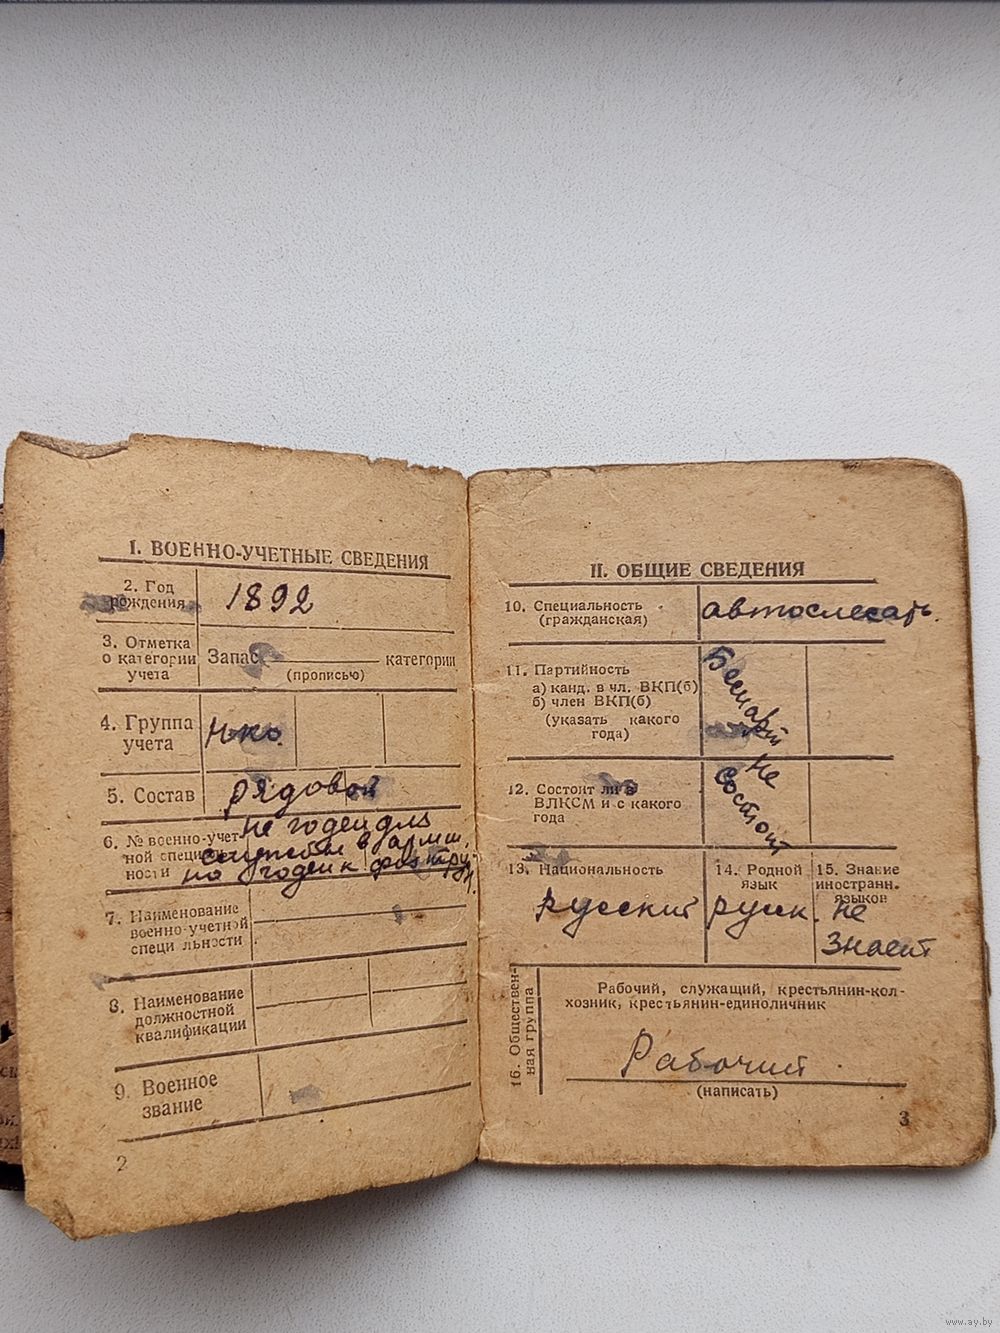 I. ВОЕННО-УЧЕТНЫЕ СВЕДЕНИЯ
2. Год
рождения
1892
3. Отметка
о категории
учета
Запас
категории
(прописью)
4. Группа
учета
НКО
5. Состав
рядовой
6. № военно-учет-
ной специ
ности
не годен для
службы в армии,
но годен к физ тру
7. Наименование
военно-учетной
специ льности
8. Наименование
должностной
квалификации
9. Военное
звание
2
II. ОБЩИЕ СВЕДЕНИЯ
10. Специальность
(гражданская)
автослесарь.
11. Партийность
а) канд. в чл. ВКП(б)
б) член ВКП(б)
(указать какого
года)
Беспарт
12. Состоит ли в
ВЛКСМ и с какого
года
Не
состоит
13. Национальность
Русский
14. Родной
язык
русск.
15. Знание
иностранн.
языков
не
знает
16. Обществен-
ная группа
Рабочий, служащий, крестьянин-кол-
хозник, крестьянин-единоличник
Рабочий
(написать)
3
www.ay.by